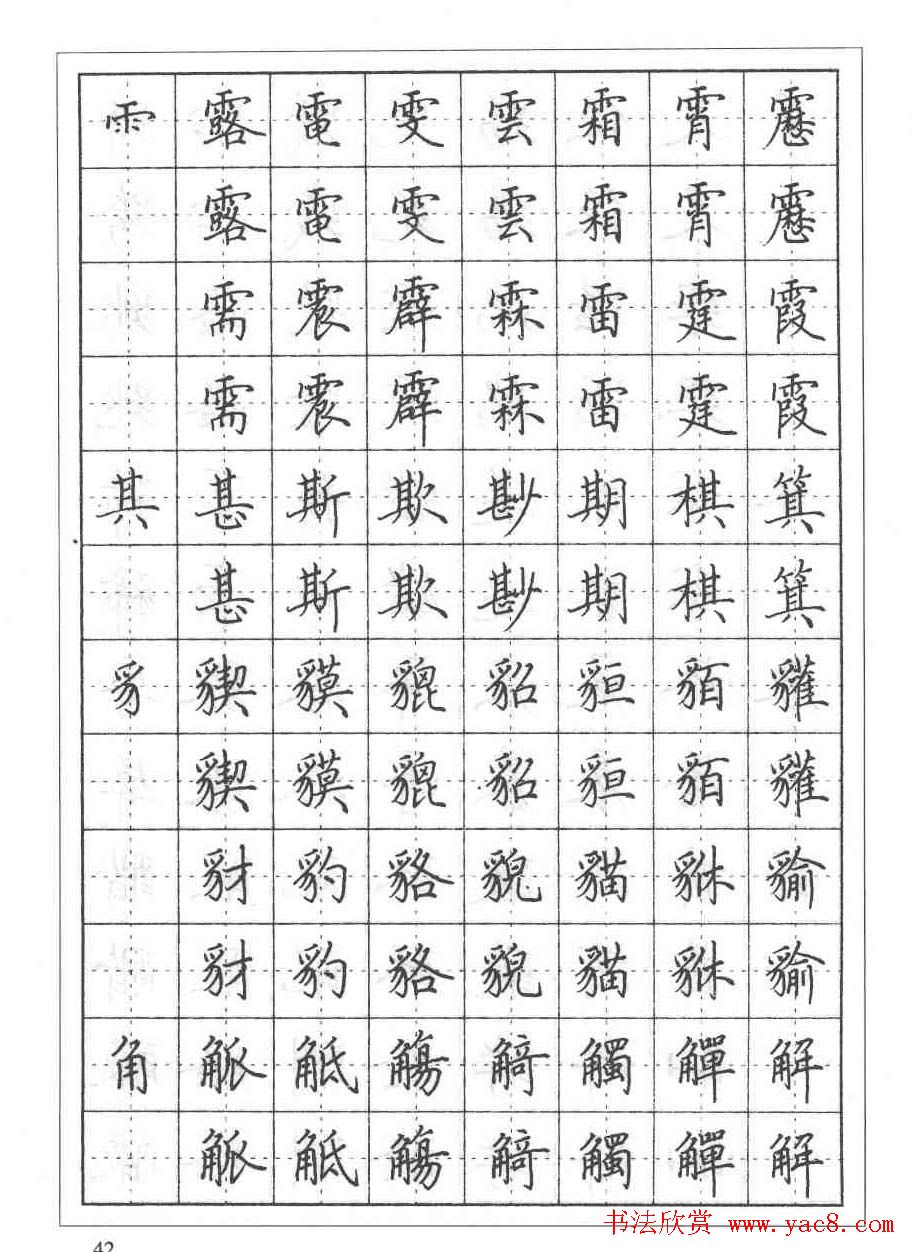 ⻗ 露 電 雯 雲 霜 霄 靂
露 電 雯 雲 霜 霄 靂
需 震 霹 霖 雷 霆 霞
需 震 霹 霖 雷 霆 霞
其 甚 斯 欺 尠 期 棋 箕
甚 斯 欺 尠 期 棋 箕
豸 貘 貔 貂 貆 貊 貛
貘 貔 貂 貆 貊 貛
豺 豹 貉 貌 貓 貅 貐
豺 豹 貉 貌 貓 貅 貐
角 觝 觴 觭 觸 觶 解
觝 觴 觭 觸 觶 解
书法欣赏 www.yac8.com
42